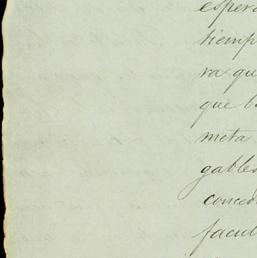 espera
tiemp
ra que
que b
meta
gables
conced
facul